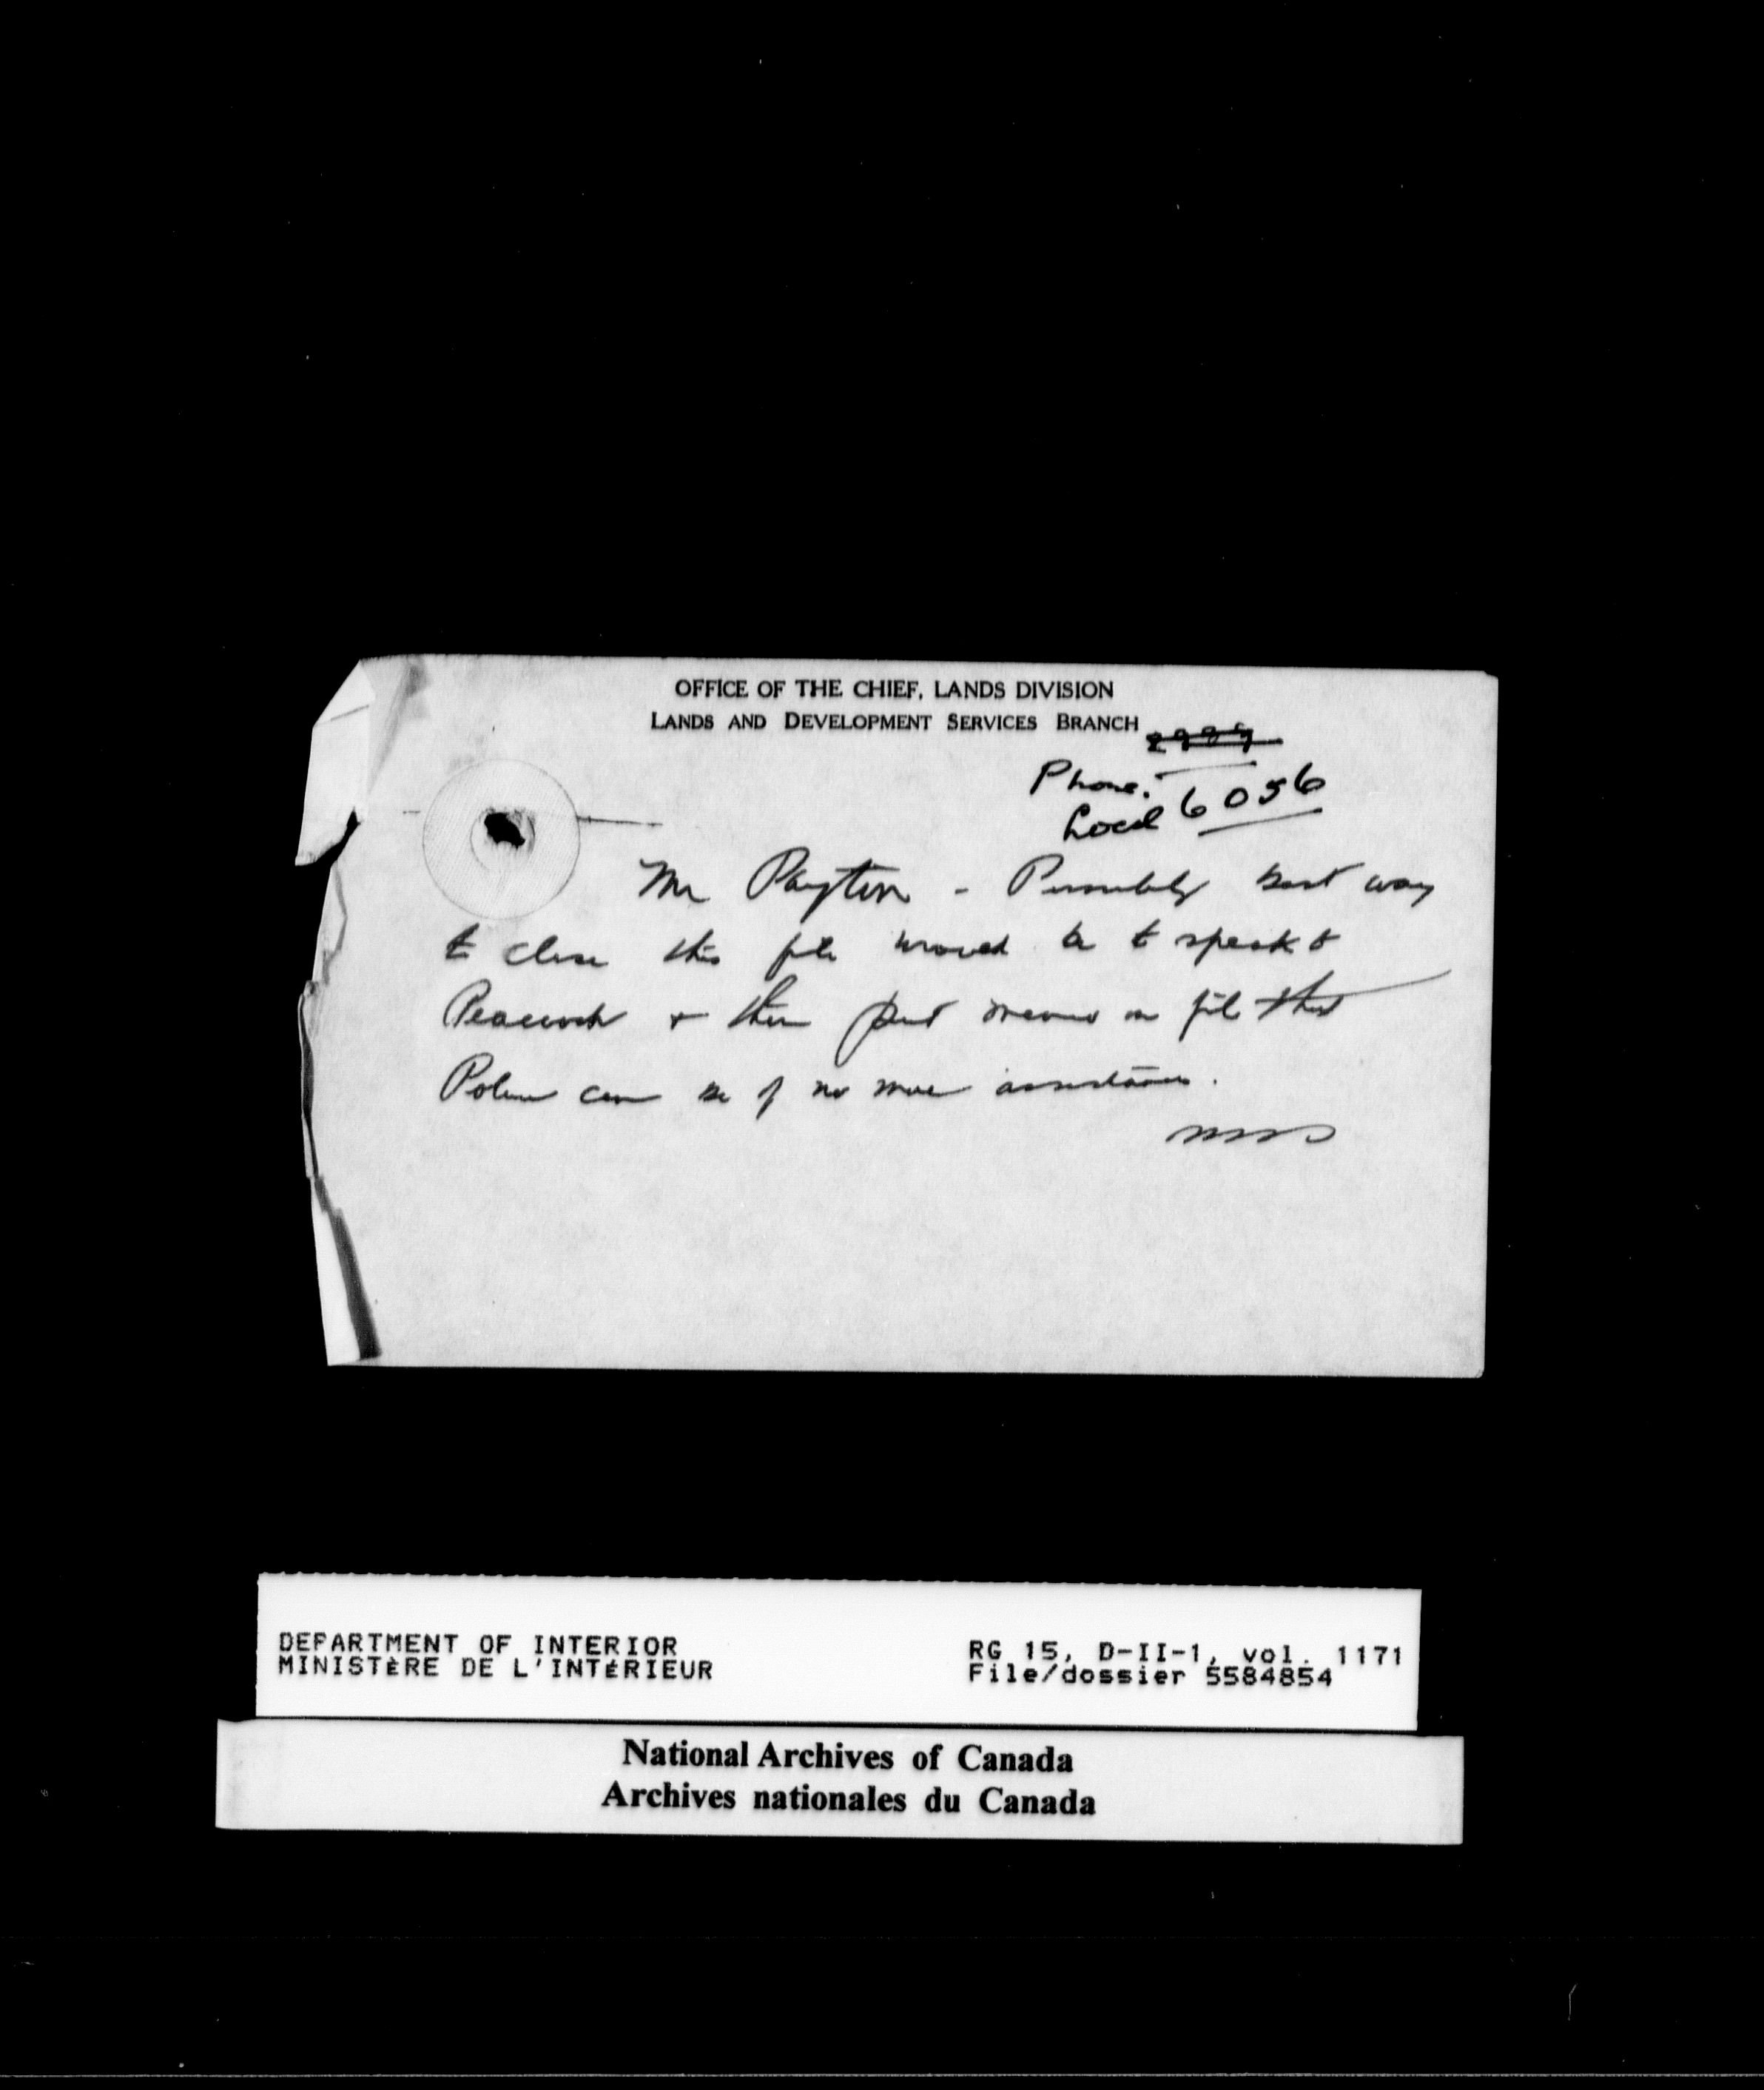 OFFICE OF THE CHIEF, LANDS DIVISION
LANDS AND DEVELOPMENT SERVICES BRANCH
Phone.
Local 6056
Mr Payton - Possibly best way
to close this file would be to speak to
Peacock + then put memo on file that
Police can be of no more assistance.
DEPARTMENT OF INTERIOR
MINISTÈRE DE L'INTÉRIEUR
RG 15, D-II-1, vol. 1171
File/dossier 5584854
National Archives of Canada
Archives nationales du Canada